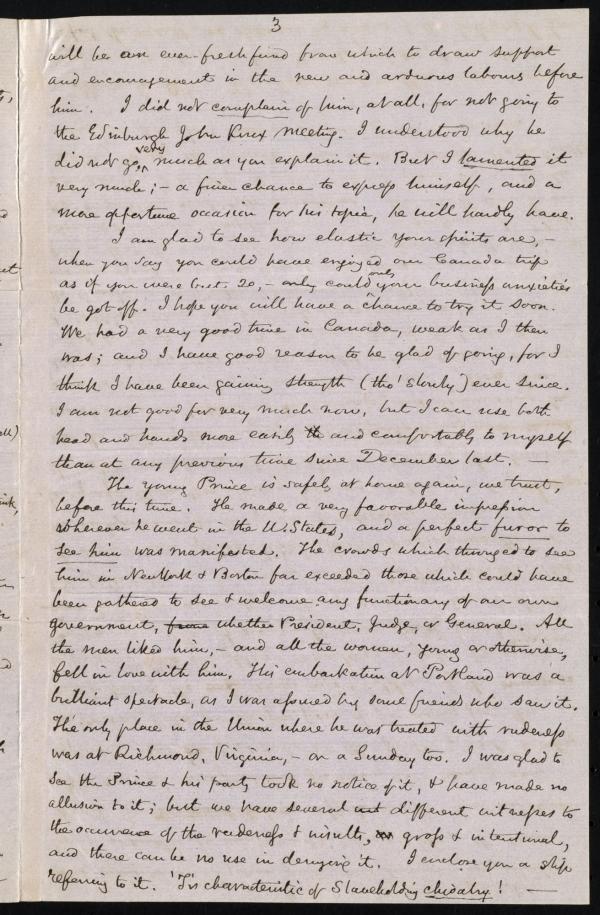 3
will be an ever-fresh fund from which to draw support
and encouragement in the new and arduous labours before
him. I did not complain of him, at all, for not going to
the Edinburgh John Knox meeting. I understood why he
did not go, very much as you explain it. But I lamented it
very much; – a finer chance to express himself, and a
more opportune occasion for his topic, he will hardly have.
I am glad to see how elastic your spirits are, –
when you say you could have enjoyed our Canada trip
as if you were but 20, – only could only your business anxieties
be got off. I hope you will have a chance to try it soon.
We had a very good time in Canada, weak as I then
was; and I have good reason to be glad of going, for I
think I have been gaining strength (tho' slowly) ever since.
I am not good for very much now, but I can use both
head and hands more easily th and comfortably to myself
than at any previous time since December last. –
The young Prince is safely at home again, we trust,
before this time. He made a very favorable impression
wherever he went in the U. States, and a perfect furor to
see him was manifested. The crowds which thronged to see
him in New York & Boston far exceeded those which could have
been gathered to see & welcome any functionary of our own
government, from whether President, Judge, or General. All
the men liked him, – and all the women, young or otherwise,
fell in love with him. His embarkation at Portland was a
brilliant spectacle, as I was assured by some friends who saw it.
The only place in the Union where he was treated with rudeness
was at Richmond, Virginia, – on a Sunday too. I was glad to
see the Prince & his party took no notice of it, & have made no
allusion to it; but we have several wit different witnesses to
the occurrence of the rudeness & insults, gross & intentional,
and there can be no use in denying it. I enclose you a slip
referring to it. 'Tis characteristic of Slaveholding chivalry! –